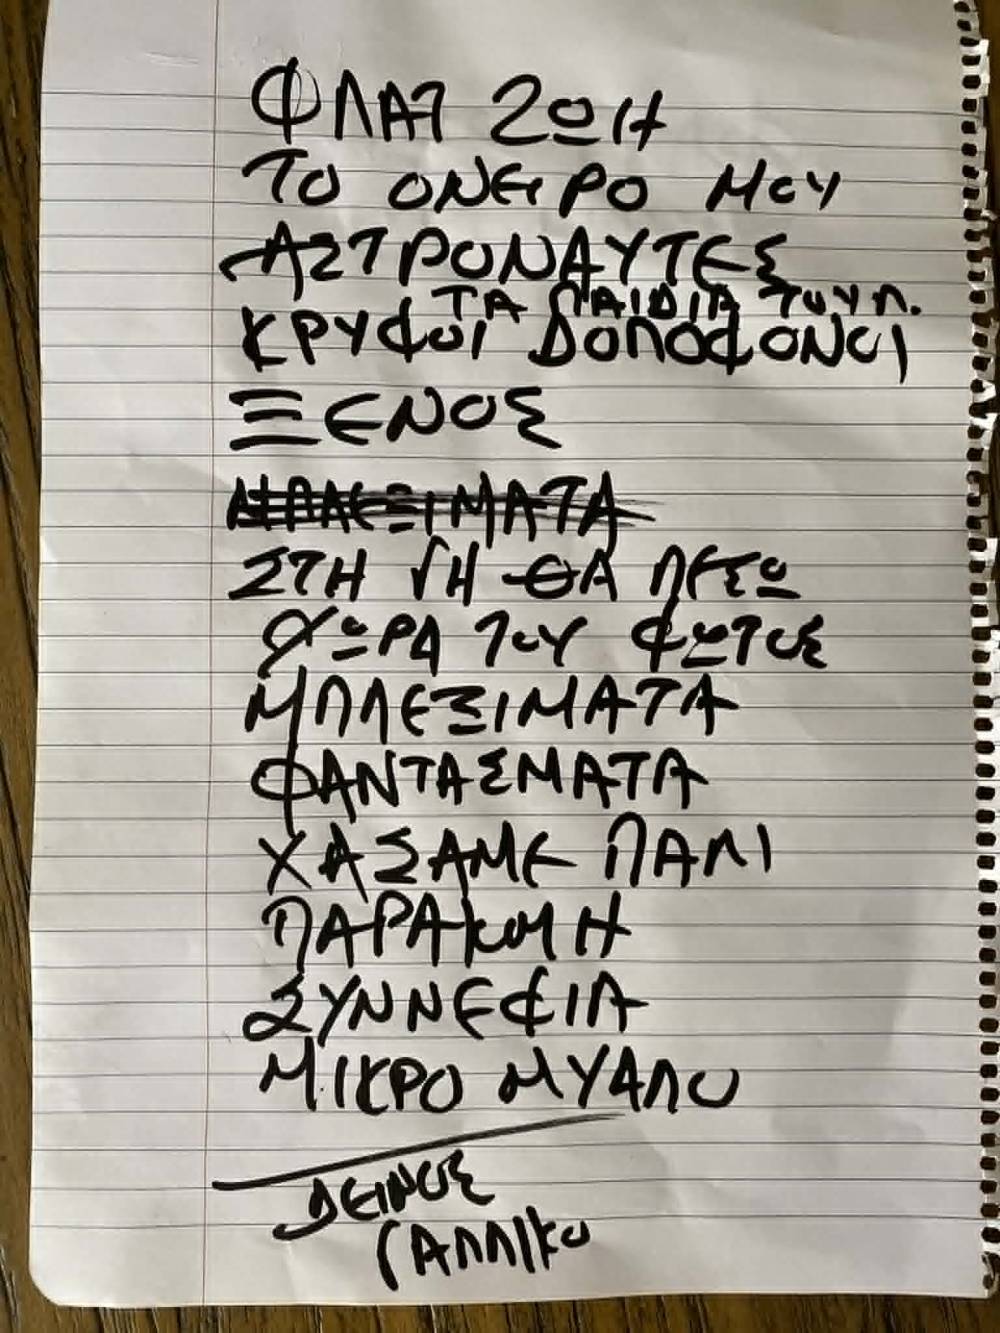 ΦΛΑΤ ΖΩΗ
ΤΟ ΟΝΕΙΡΟ ΜΟΥ
ΑΣΤΡΟΝΑΥΤΕΣ
ΤΑ ΠΑΙΔΙΑ ΤΟΥ Π.
ΚΡΥΦΟΙ ΔΟΛΟΦΟΝΟΙ
ΞΕΝΟΣ
ΜΠΛΕΞΙΜΑΤΑ
ΣΤΗ ΓΗ ΘΑ ΠΕΣΩ
ΧΩΡΑ ΤΟΥ ΦΩΤΟΣ
ΜΠΛΕΞΙΜΑΤΑ
ΦΑΝΤΑΣΜΑΤΑ
ΧΑΣΑΜΕ ΠΑΛΙ
ΠΑΡΑΚΜΗ
ΣΥΝΝΕΦΙΑ
ΜΙΚΡΟ ΜΥΑΛΟ
ΔΕΙΝΟΣ
ΓΑΛΛΙΚΟ